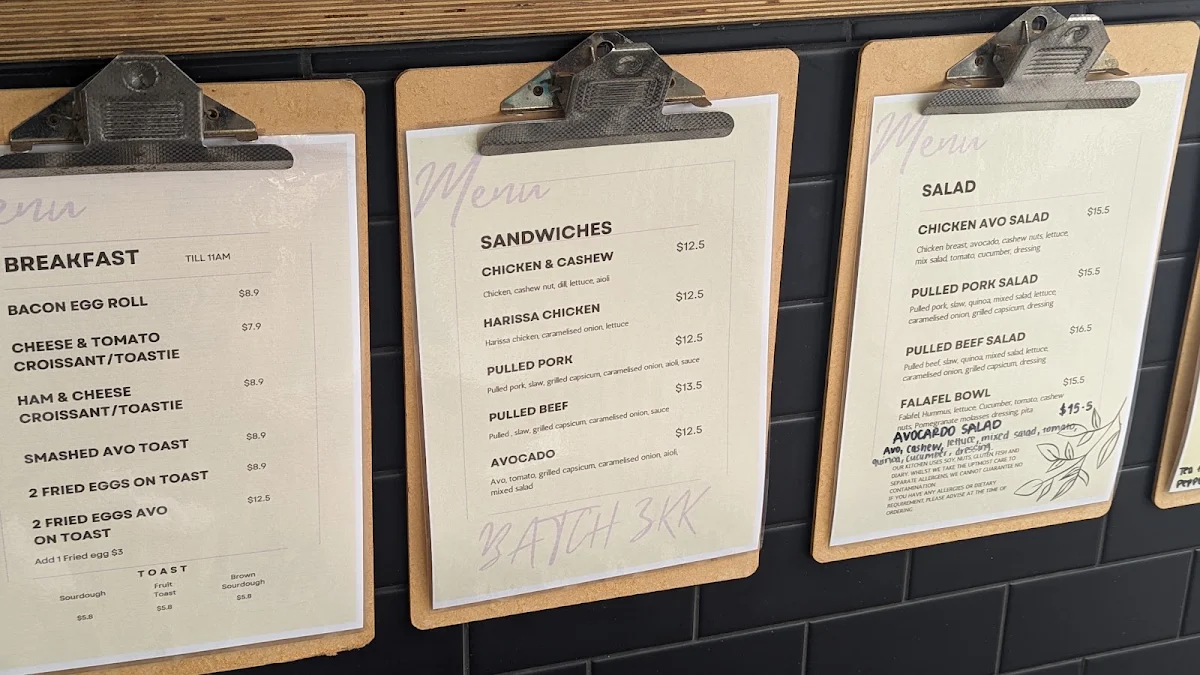 enu
BREAKFAST TILL 11AM
BACON EGG ROLL $8.9
CHEESE & TOMATO $7.9
CROISSANT/TOASTIE
HAM & CHEESE $8.9
CROISSANT/TOASTIE
SMASHED AVO TOAST $8.9
2 FRIED EGGS ON TOAST $8.9
2 FRIED EGGS AVO $12.5
ON TOAST
Add 1 Fried egg $3
TOAST
Sourdough Fruit Toast Brown Sourdough
$5.8 $5.8 $5.8
Menu
SANDWICHES
CHICKEN & CASHEW $12.5
Chicken, cashew nut, dill, lettuce, aioli
HARISSA CHICKEN $12.5
Harissa chicken, caramelised onion, lettuce
PULLED PORK $12.5
Pulled pork, slaw, grilled capsicum, caramelised onion, aioli, sauce
PULLED BEEF $13.5
Pulled , slaw, grilled capsicum, caramelised onion, sauce
AVOCADO $12.5
Avo, tomato, grilled capsicum, caramelised onion, aioli,
mixed salad
BATCH 3KK
Menu
SALAD
CHICKEN AVO SALAD $15.5
Chicken breast, avocado, cashew nuts, lettuce,
mix salad, tomato, cucumber, dressing
PULLED PORK SALAD $15.5
Pulled pork, slaw, quinoa, mixed salad, lettuce,
caramelised onion, grilled capsicum, dressing
PULLED BEEF SALAD $16.5
Pulled beef, slaw, quinoa, mixed salad, lettuce,
caramelised onion, grilled capsicum, dressing
FALAFEL BOWL $15.5
Falafel, Hummus, lettuce, Cucumber, tomato, cashew
nuts, Pomegranate molasses dressing, pita
AVOCARDO SALAD $15-5
Avo, cashew, lettuce, mixed salad, tomato,
quinoa, cucumber, dressing
OUR KITCHEN USES SOY, NUTS, GLUTEN FISH AND
DIARY. WHILST WE TAKE THE UPTMOST CARE TO
SEPARATE ALLERGENS, WE CANNOT GUARANTEE NO
CONTAMINATION
IF YOU HAVE ANY ALLERGIES OR DIETARY
REQUIREMENT, PLEASE ADVISE AT THE TIME OF
ORDERING